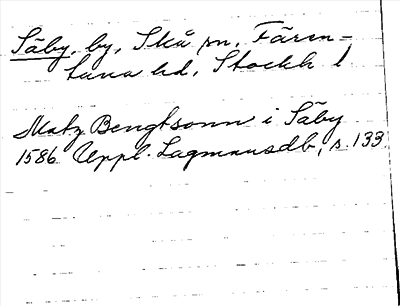 Säby, by, Skå sn, Fären-
tuna hd, Stockh l
Matz Bengtsonn i Säby
1586 Uppl. Lagmansdb, s. 133